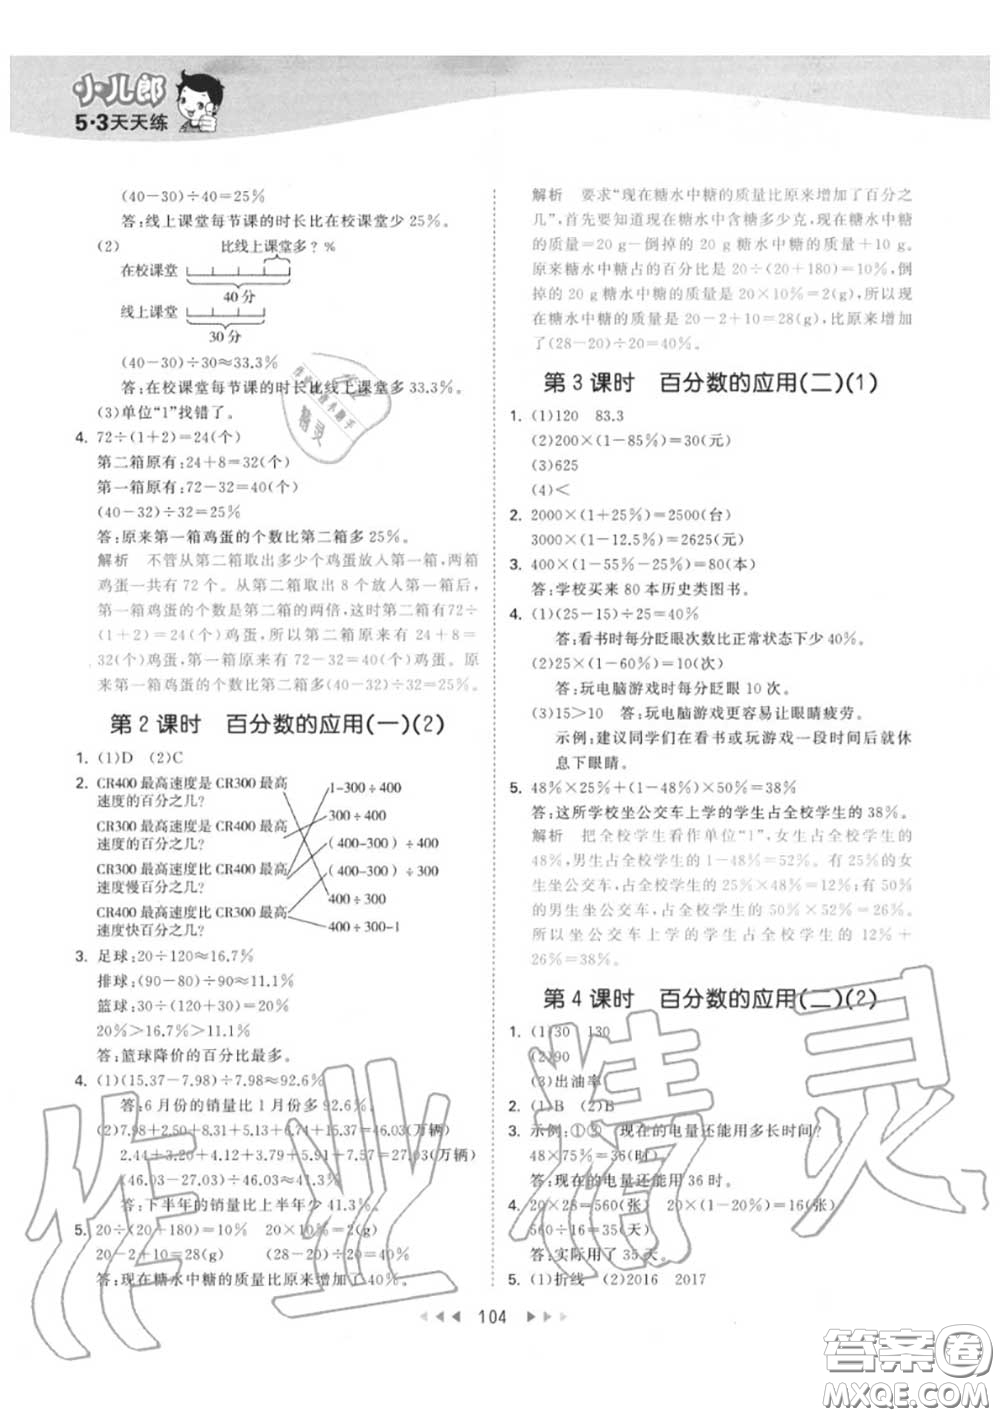 小儿郎
5·3天天练
(40-30)÷40=25%
答:线上课堂每节课的时长比在校课堂少 25%。
(2) 比线上课堂多? %
在校课堂
40 分
线上课堂
30 分
(40-30)÷30≈33.3%
答:在校课堂每节课的时长比线上课堂多 33.3%。
(3)单位“1”找错了。
4. 72÷(1+2)=24(个)
第二箱原有:24+8=32(个)
第一箱原有:72-32=40(个)
(40-32)÷32=25%
答:原来第一箱鸡蛋的个数比第二箱多 25%。
解析 不管从第二箱取出多少个鸡蛋放入第一箱,两箱
鸡蛋一共有 72 个。从第二箱取出 8 个放入第一箱后,
第一箱鸡蛋的个数是第二箱的两倍,这时第二箱有72÷
(1+2)=24(个)鸡蛋,所以第二箱原来有 24+8=
32(个)鸡蛋,第一箱原来有 72-32=40(个)鸡蛋。原
来第一箱鸡蛋的个数比第二箱多(40-32)÷32=25%。
第 2 课时 百分数的应用(一)(2)
1. (1)D (2)C
2. CR400 最高速度是 CR300 最高
速度的百分之几?
CR300 最高速度是 CR400 最高
速度的百分之几?
CR300 最高速度比 CR400 最高
速度慢百分之几?
CR400 最高速度比 CR300 最高
速度快百分之几?
1-300÷400
300÷400
(400-300)÷400
(400-300)÷300
400÷300
400÷300-1
3. 足球:20÷120≈16.7%
排球:(90-80)÷90≈11.1%
篮球:30÷(120+30)=20%
20%>16.7%>11.1%
答:篮球降价的百分比最多。
4. (1)(15.37-7.98)÷7.98≈92.6%
答:6 月份的销量比 1 月份多 92.6%。
(2)7.98+2.50+8.31+5.13+6.74+15.37=46.03(万辆)
2.44+3.20+4.12+3.79+5.91+7.57=27.03(万辆)
(46.03-27.03)÷46.03≈41.3%
答:下半年的销量比上半年少 41.3%。
5. 20÷(20+180)=10% 20×10%=2(g)
20-2+10=28(g) (28-20)÷20=40%
答:现在糖水中糖的质量比原来增加了 40%。
解析 要求“现在糖水中糖的质量比原来增加了百分之
几”,首先要知道现在糖水中含糖多少克,现在糖水中糖
的质量=20 g-倒掉的 20 g糖水中糖的质量+10 g。
原来糖水中糖占的百分比是 20÷(20+180)=10%,倒
掉的 20 g糖水中糖的质量是 20×10%=2(g),所以现
在糖水中糖的质量是 20-2+10=28(g),比原来增加
了(28-20)÷20=40%。
第 3 课时 百分数的应用(二)(1)
1. (1)120 83.3
(2)200×(1-85%)=30(元)
(3)625
(4)<
2. 2000×(1+25%)=2500(台)
3000×(1-12.5%)=2625(元)
3. 400×(1-55%-25%)=80(本)
答:学校买来 80 本历史类图书。
4. (1)(25-15)÷25=40%
答:看书时每分眨眼次数比正常状态下少 40%。
(2)25×(1-60%)=10(次)
答:玩电脑游戏时每分眨眼 10 次。
(3)15>10 答:玩电脑游戏更容易让眼睛疲劳。
示例:建议同学们在看书或玩游戏一段时间后就休
息下眼睛。
5. 48%×25%+(1-48%)×50%=38%
答:这所学校坐公交车上学的学生占全校学生的 38%。
解析 把全校学生看作单位“1”,女生占全校学生的
48%,男生占全校学生的 1-48%=52%。有 25%的女
生坐公交车,占全校学生的 25%×48%=12%;有 50%
的男生坐公交车,占全校学生的 50%×52%=26%。
所以坐公交车上学的学生占全校学生的 12%+
26%=38%。
第 4 课时 百分数的应用(二)(2)
1. (1)30 130
(2)90
(3)出油率
2. (1)B (2)B
3. 示例:①③ (现在的电量还能用多长时间?
48×75%=36(时)
答:现在的电量还能用 36 时。
4. 20×28=560(张) 20×(1-20%)=16(张)
560÷16=35(天)
答:实际用了 35 天。
5. (1)折线 (2)2016 2017
104
作业精灵
答案圈
MXQE.COM